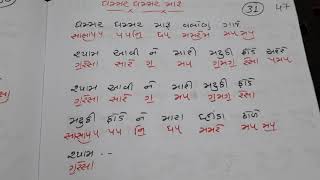 ઘમ્મર ઘમ્મર મારૂ
31 47
ઘમ્મર ઘમ્મર મારૂ વલોણુ ગાજે
સાસાપપ પપનિ ધપ મમરેમ મપ મપ
શ્યામ આવી ને મારી મટુકી ફોડે
ગરેસા સારે ગ મપ ગમગ રેસા
શ્યામ આવી ને મારી મટુકી ફોડે
ગરેસા સારે ગ મપ ગમગ રેસા
મટુકી ફોડે ને મારા ઢોળે
સાસાપપ પપ નિ ધપ મમરે મપ મપ
શ્યામ ..-
ગરેસા